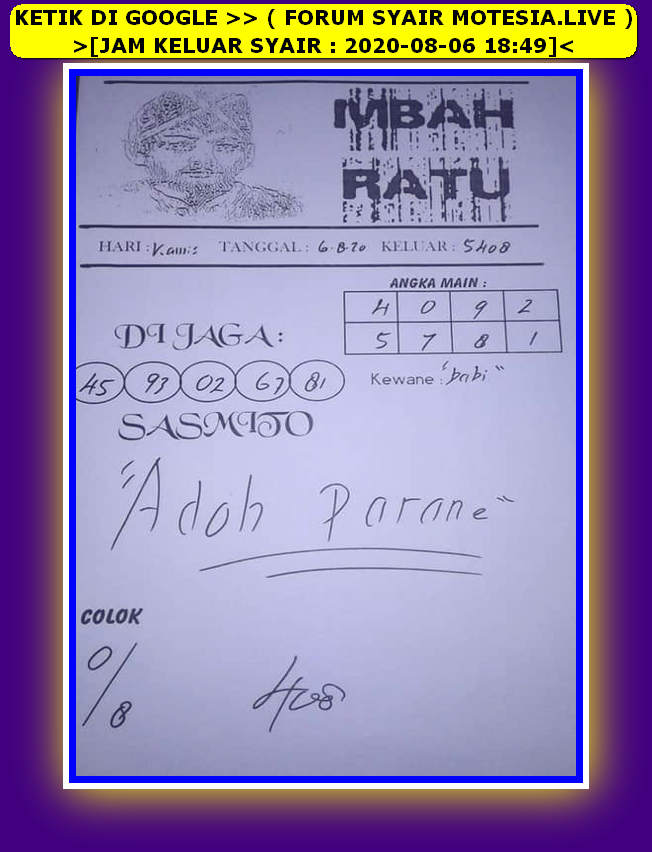 KETIK DI GOOGLE >> ( FORUM SYAIR MOTESIA.LIVE )
>[JAM KELUAR SYAIR : 2020-08-06 18:49]<
MBAH
RATU
HARI : Kamis TANGGAL : 6-8-20 KELUAR : 5408
ANGKA MAIN :
4 0 9 2
5 7 8 1
DI JAGA :
45 93 02 67 81
Kewane : "babi"
SASMITO
"Adoh Parane"
COLOK
0/8